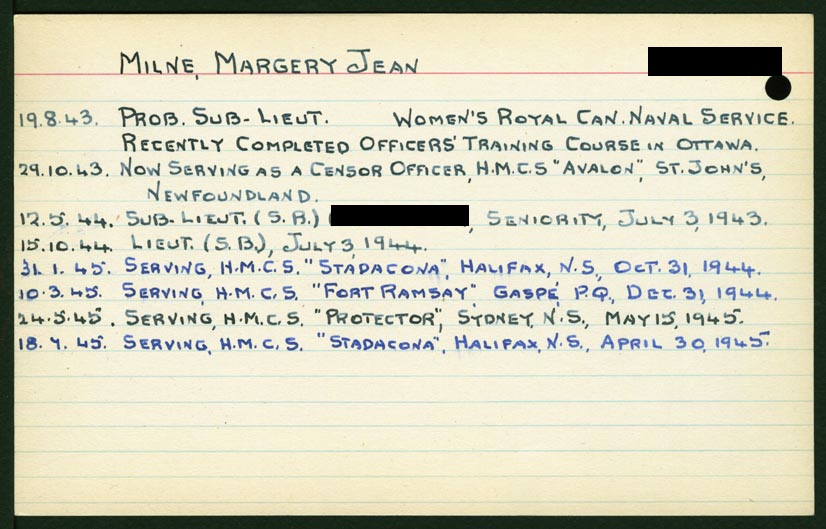 MILNE, MARGERY JEAN
19.8.43. PROB. SUB-LIEUT. WOMEN'S ROYAL CAN. NAVAL SERVICE.
RECENTLY COMPLETED OFFICERS' TRAINING COURSE IN OTTAWA.
29.10.43. NOW SERVING AS A CENSOR OFFICER, H.M.C.S "AVALON", ST. JOHN'S,
NEWFOUNDLAND.
12.5.44. SUB-LIEUT. (S.B.) ( , SENIORITY, JULY 3, 1943.
15.10.44. LIEUT. (S.B.), JULY 3, 1944.
31.1.45. SERVING, H.M.C.S. "STADACONA", HALIFAX, N.S., OCT. 31, 1944.
10.3.45. SERVING, H.M.C.S. "FORT RAMSAY", GASPÉ, P.Q., DEC. 31, 1944.
24.5.45. SERVING, H.M.C.S. "PROTECTOR", SYDNEY, N.S., MAY 15, 1945.
18.7.45. SERVING, H.M.C.S. "STADACONA", HALIFAX, N.S., APRIL 30, 1945.